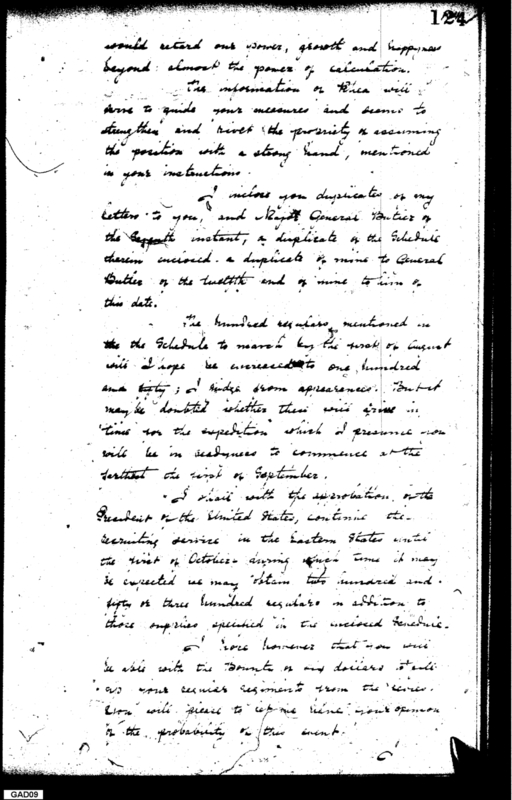 124
would retard our power, growth and happyness
beyond almost the power of calculation.
The information of Rhea will
serve to guide your measures and seems to
strengthen and rivet the propriety of assuming
the position with a strong hand, mentioned
in your instructions.
I inclose you duplicates of my
letters to you, and Major General Butler of
the Seventh instant, a duplicate of the Schedule
therein enclosed - a duplicate of mine to General
Butler of the twelfth and of mine to him of
this date.
The hundred regulars, mentioned in
the Schedule to march by the first of August
will I hope be increased to one hundred
and fifty; I judge from appearances. But it
may be doubted whether these will arrive in
time for the expedition which I presume you
will be in readyness to commence at the
farthest the first of September.
I shall with the approbation, of the
President of the United States, continue the
recruiting service in the Eastern States until
the first of October during which time it may
be expected we may obtain two hundred and
fifty or three hundred regulars in addition to
those specified in the inclosed Schedule.
I hope however that you will
be able with the Bounty of six dollars to
your regular regiments from the levies.
You will please to let me have your opinion
of the probability of this event.
GAD09